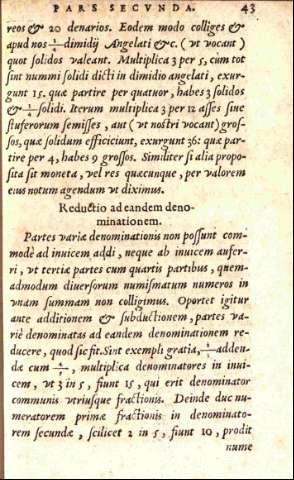 PARS SECVNDA. 43
reos & 20 denarios. Eodem modo colliges &
apud nos dimidij Angelati &c. ( vt vocant )
quot solidos valeant. Multiplica 3 per 5, cum tot
sint nummi solidi dicti in dimidio angelati, exur-
gunt 15. quæ partire per quatuor, habes 3 solidos
& solidi. Iterum multiplica 3 per 12 asses siue
stuferorum semisses , aut ( vt nostri vocant) gros-
sos, quæ solidum efficiciunt, exurgunt 36: quæ par-
tire per 4, habes 9 grossos. Similiter si alia propo-
sita sit moneta, vel res quæcunque , per valorem
eius notum agendum vt diximus.
Reductio ad eandem deno-
minationem.
Partes variæ denominationis non possunt com-
modè ad inuicem addi , neque ab inuicem aufer-
ri , vt tertiæ partes cum quartis partibus , quem-
admodum diuersorum numismatum numeros in
vnam summam non colligimus. Oportet igitur
ante additionem & subductionem , partes va-
riè denominatas ad eandem denominationem re-
ducere , quod sic fit. Sint exempli gratia, adden-
dæ cum , multiplica denominatores in inui-
cem , vt 3 in 5 , fiunt 15 , qui erit denominator
communis vtriusque fractionis. Deinde duc nu-
meratorem primæ fractionis in denominato-
rem secundæ , scilicet 2 in 5 , fiunt 10 , prodit
nume